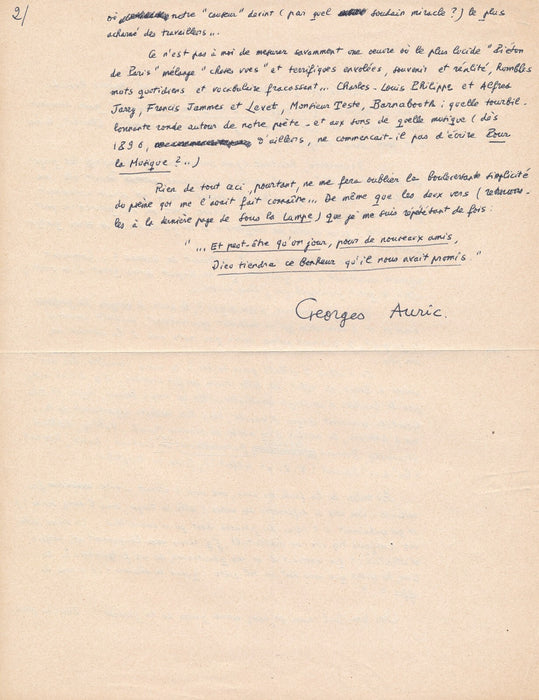 2/
où notre "causeur" devint (par quel soudain miracle ?) le plus
acharné des travailleurs...
Ce n'est pas à moi de mesurer savamment une œuvre où le plus lucide "Piéton
de Paris" mélange "choses vues" et terrifiques envolées, souvenir et réalité, humbles
mots quotidiens et vocabulaire fracassant... Charles-Louis Philippe et Alfred
Jarry, Francis Jammes et Levet, Monsieur Teste, Barnabooth : quelle tourbil-
lonnante ronde autour de notre poète - et aux sons de quelle musique (dès
1896, d'ailleurs, ne commençait-il pas d'écrire Pour
la Musique ?..)
Rien de tout ceci, pourtant, ne me fera oublier la bouleversante simplicité
du poème qui me l'avait fait connaître... De même que les deux vers (retrouvez-
les à la dernière page de Sous la Lampe) que je me suis répété tant de fois :
"... Et peut-être qu'un jour, pour de nouveaux amis,
Dieu tiendra ce bonheur qu'il nous avait promis."
Georges Auric.